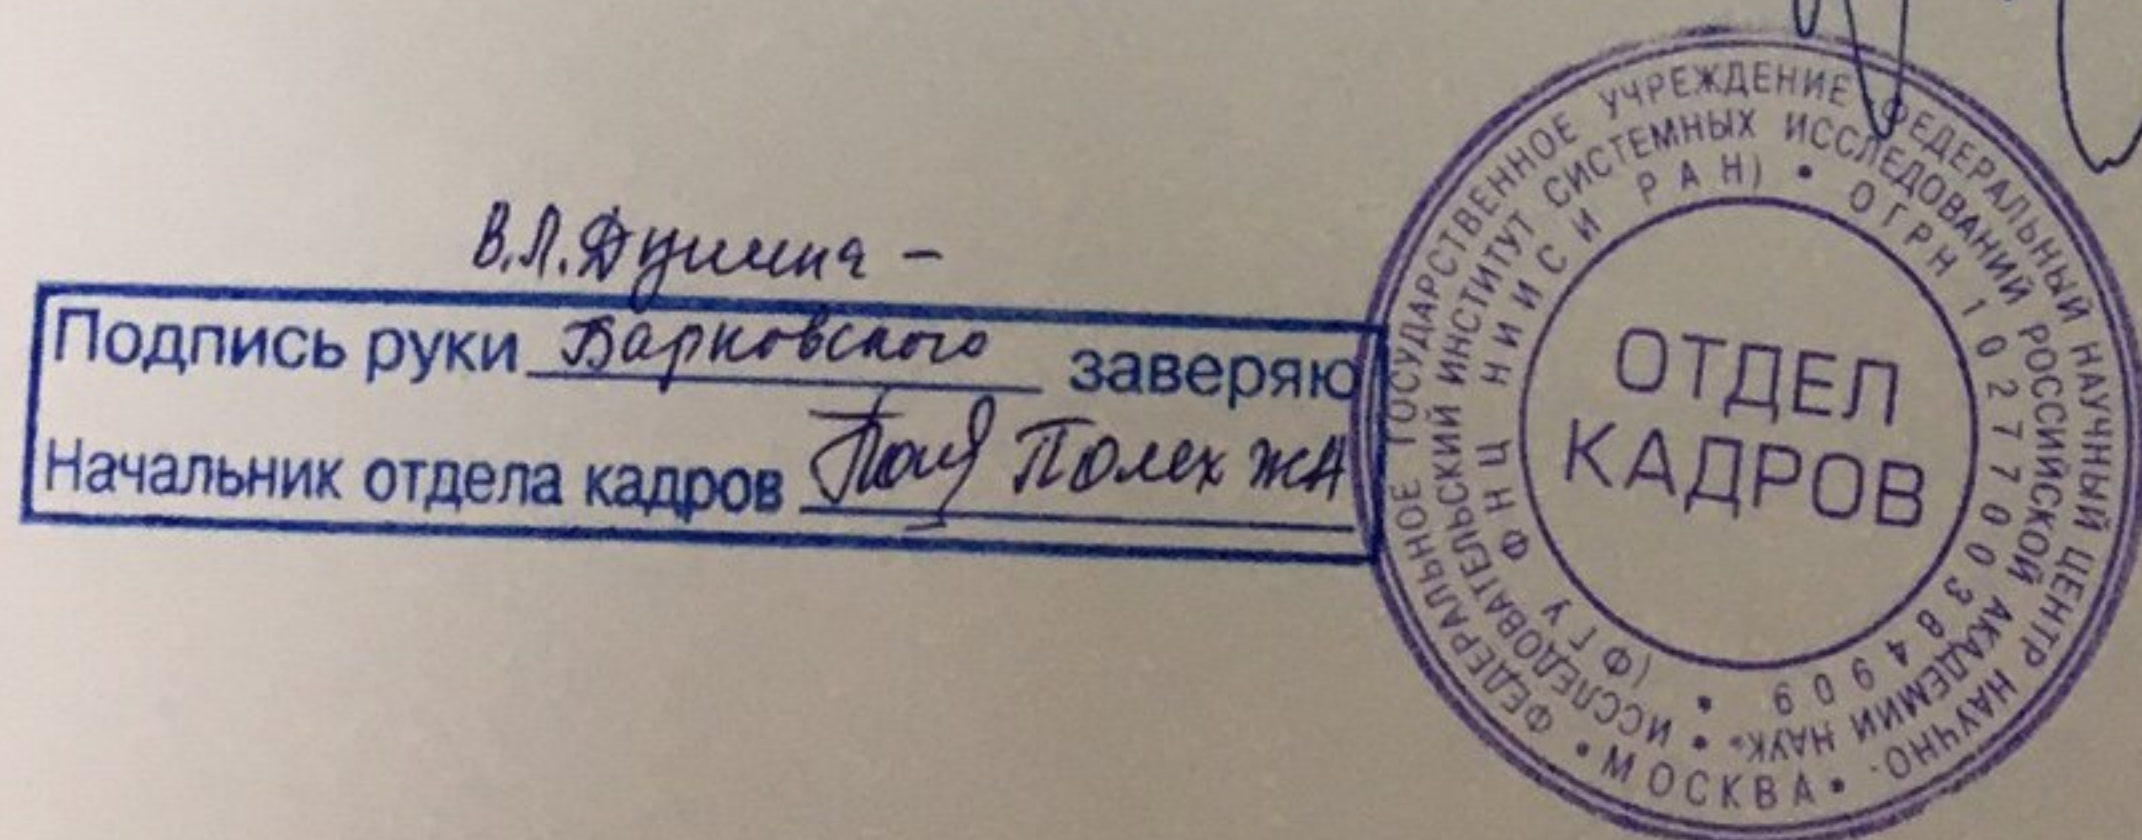 В.Л. Дунина -
Подпись руки Барковского заверяю
Начальник отдела кадров Полех ЖА
ФЕДЕРАЛЬНОЕ ГОСУДАРСТВЕННОЕ УЧРЕЖДЕНИЕ «ФЕДЕРАЛЬНЫЙ НАУЧНЫЙ ЦЕНТР НАУЧНО-
ИССЛЕДОВАТЕЛЬСКИЙ ИНСТИТУТ СИСТЕМНЫХ ИССЛЕДОВАНИЙ РОССИЙСКОЙ АКАДЕМИИ НАУК» •
(ФГУ ФНЦ НИИСИ РАН) • ОГРН 1027700384909 •
• МОСКВА •
ОТДЕЛ
КАДРОВ